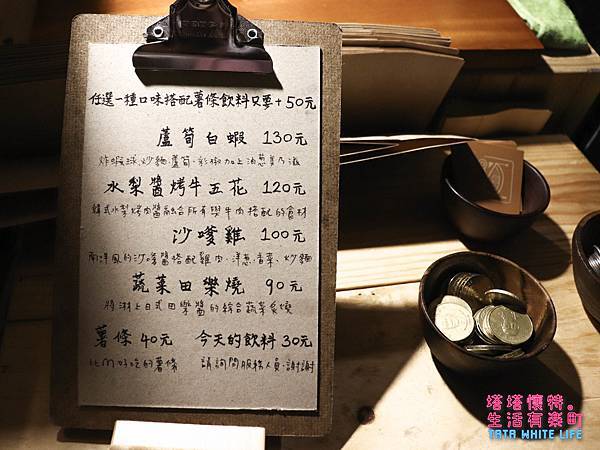 任選一種口味搭配薯條飲料只要+50元
蘆筍白蝦 130元
炸蝦球.炒麵.蘆筍.彩椒加上洋蔥美乃滋
水梨醬烤牛五花 120元
韓式水梨烤肉醬融合所有與牛肉搭配的食材
沙嗲雞 100元
南洋風的沙嗲醬搭配雞肉.洋蔥.香菜.炒麵
蔬菜田樂燒 90元
將淋上日式田樂醬的綜合蔬菜炙燒
薯條 40元 今天的飲料 30元
比ㄇㄉ好吃的薯條 請詢問服務人員.謝謝
塔塔懷特。
生活有樂町
TATA WHITE LIFE